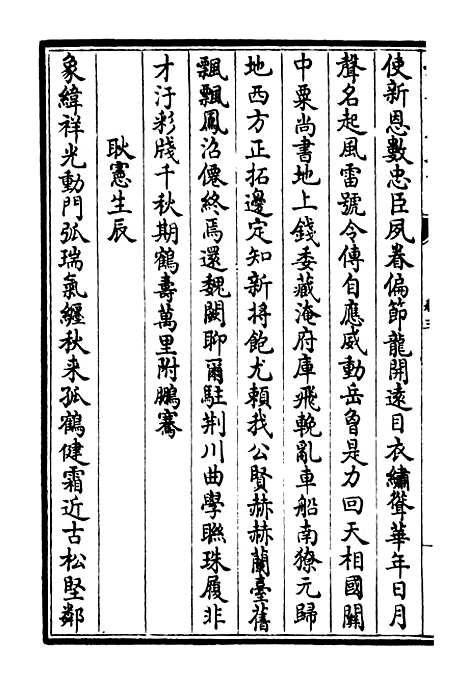 使新恩數忠臣夙眷偏節龍開遠目衣繡聳華年日月
聲名起風雷號令傳自應威動岳曾是力回天相國關
中粟尚書地上錢委藏淹府庫飛輓亂車船南獠元歸
地西方正拓邊定知新將飽尤賴我公賢赫赫蘭臺舊
飄飄鳳沼僊終焉還魏闕聊爾駐荆川曲學聮珠履非
才汙彩牋千秋期鶴壽萬里附鵬騫
耿憲生辰
象緯祥光動門弧瑞氣纏秋来孤鶴健霜近古松堅鄰